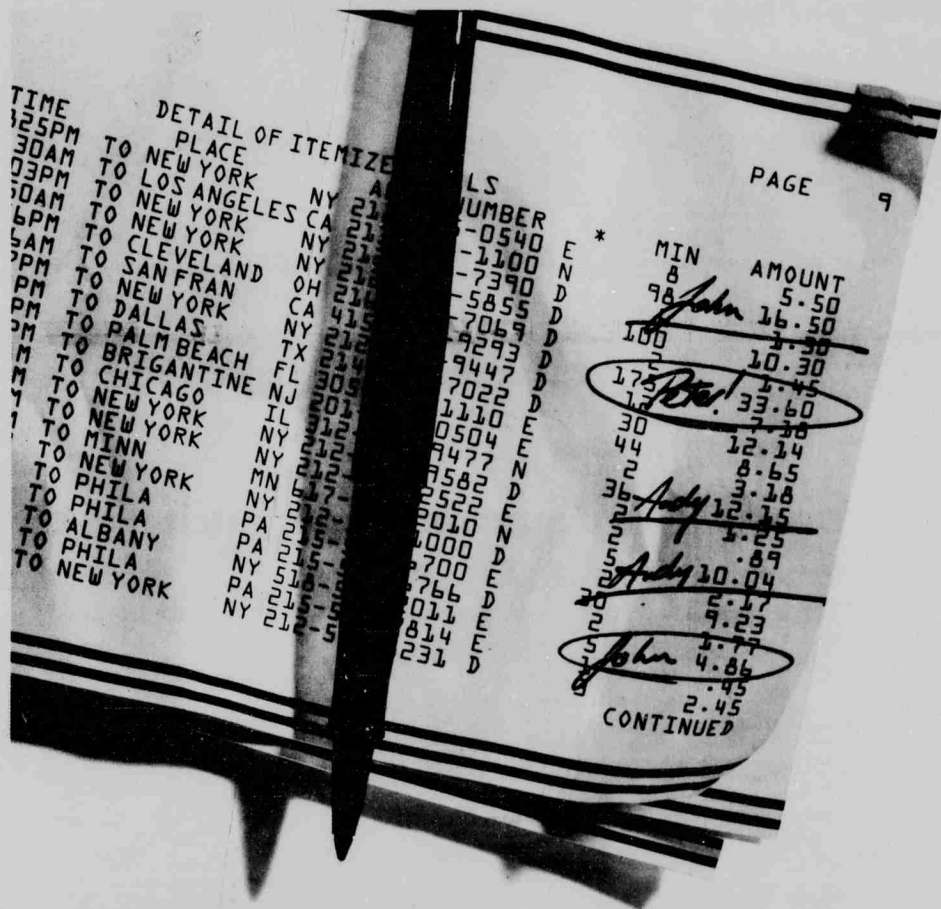 DETAIL OF ITEMIZE LS PAGE 9
TIME PLACE NUMBER * MIN AMOUNT
25PM TO NEW YORK NY 21 -0540 E 8 5.50
30AM TO LOS ANGELES CA 21 -1100 N 98 John 16.50
03PM TO NEW YORK NY 21 -7390 D 1.30
50AM TO NEW YORK NY 21 -5855 D 100 10.30
6PM TO CLEVELAND OH 21 -7069 D 2 1.45
6AM TO SAN FRAN CA 41 -9293 D 175 Peter! 33.60
PM TO NEW YORK NY 21 -9447 D 13 7.18
PM TO DALLAS TX 21 7022 D 30 12.14
PM TO PALM BEACH FL 30 1110 E 44 8.65
PM TO BRIGANTINE NJ 0504 E 2 3.18
M TO CHICAGO IL 312 9477 N 36 Andy 12.15
M TO NEW YORK NY 212 9582 D 2 1.25
TO NEW YORK NY 212 2522 E 2 .89
TO MINN MN 2010 N 5 Andy 10.04
TO NEW YORK NY 1000 D 2 2.17
TO PHILA PA 215 700 E 20 9.23
TO PHILA PA 215 766 D 2 1.77
TO ALBANY NY 518 011 E 5 John 4.86
TO PHILA PA 215 814 E .45
TO NEW YORK NY 212-5 231 D 2.45
CONTINUED